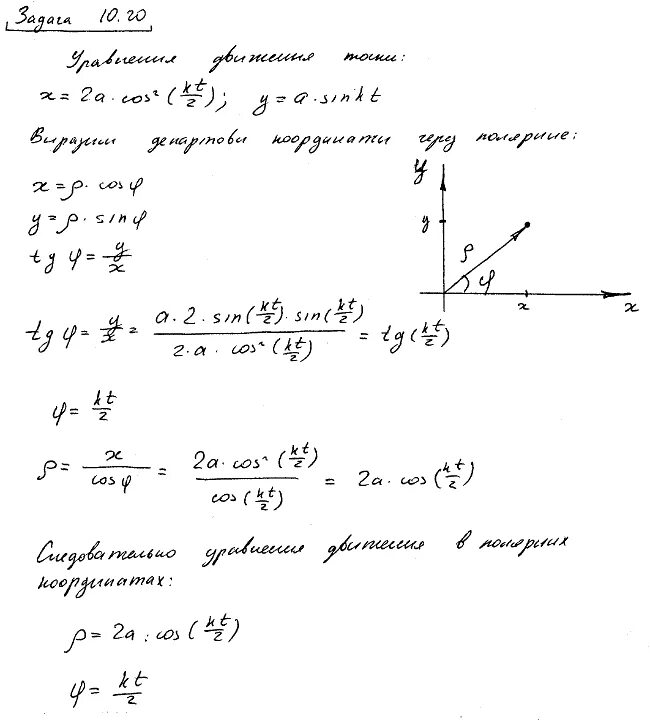 Задача 10.20
Уравнения движения точки:
x = 2a · cos² (kt/2); y = a · sin kt
Выразим декартовы координаты через полярные:
x = ρ · cos φ
y = ρ · sin φ
tg φ = y/x
y
y
ρ
φ
x
x
tg φ = y/x = a · 2 · sin(kt/2) · sin(kt/2) / 2 · a · cos² (kt/2) = tg (kt/2)
φ = kt/2
ρ = x / cos φ = 2a · cos² (kt/2) / cos (kt/2) = 2a · cos (kt/2)
Следовательно уравнения движения в полярних
координатах:
ρ = 2a · cos (kt/2)
φ = kt/2